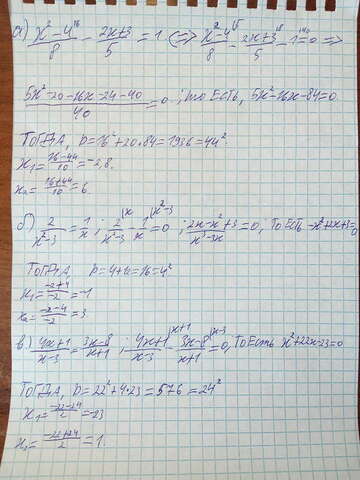 а) x²-4/8 - 2x+3/5 = 1 (=) x²-4\⁵/8 - 2x+3\⁸/5 - 1\⁴⁰=0 =)
5x²-20-16x-24-40/40 =0 ; то есть, 5x²-16x-84=0
Тогда, D=16²+20·84=1936=44².
x₁= 16-44/10 =-2,8.
x₂= 16+44/10 =6.
б) 2/x²-3 = 1/x ; 2\ˣ/x²-3 - 1\ˣ²⁻³/x =0 ; 2x-x²+3/x³-3x =0; то есть -x²+2x+3=0
Тогда D=4+12=16=4²
x₁= -2+4/-2 =-1
x₂= -2-4/-2 = 3
в) 4x+1/x-3 = 3x-8/x+1 ; 4x+1\ˣ⁺¹/x-3 - 3x-8\ˣ⁻³/x+1 =0, то есть x²+22x-23=0
Тогда, D=22²+4·23=576=24²
x₁= -22-24/2 =-23
x₂= -22+24/2 = 1.